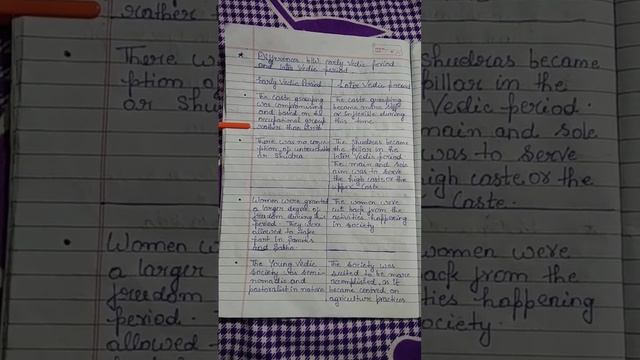 * Differences b/w early Vedic period
and later Vedic period.
Early Vedic Period
Later Vedic period
• The caste grouping
was compromising
and based on the
occupational group
rather than birth
The caste grouping
became more rigid
or inflexible during
this time.
• There was no
of
or Shudra
The shudras became
the pillar in the
later Vedic period
The main and sole
aim was to serve
the high caste or the
upper caste
• Women were granted
a larger degree of
freedom during this
period. They were
allowed to take
part in
and Sabha.
The women were
cut back from the
activities happening
in society
• The Young Vedic
society was semi-
nomadic and
pastoralist in nature
The society was
to be more
as it
became
agriculture practices
rather
There
ption o
or Shu
Women w
a larger
freedom
period.
allowed
shudras became
pillar in the
Vedic period.
main and sole
was to serve
high caste or the
Caste.
women were
back from the
ties happening
ociety.